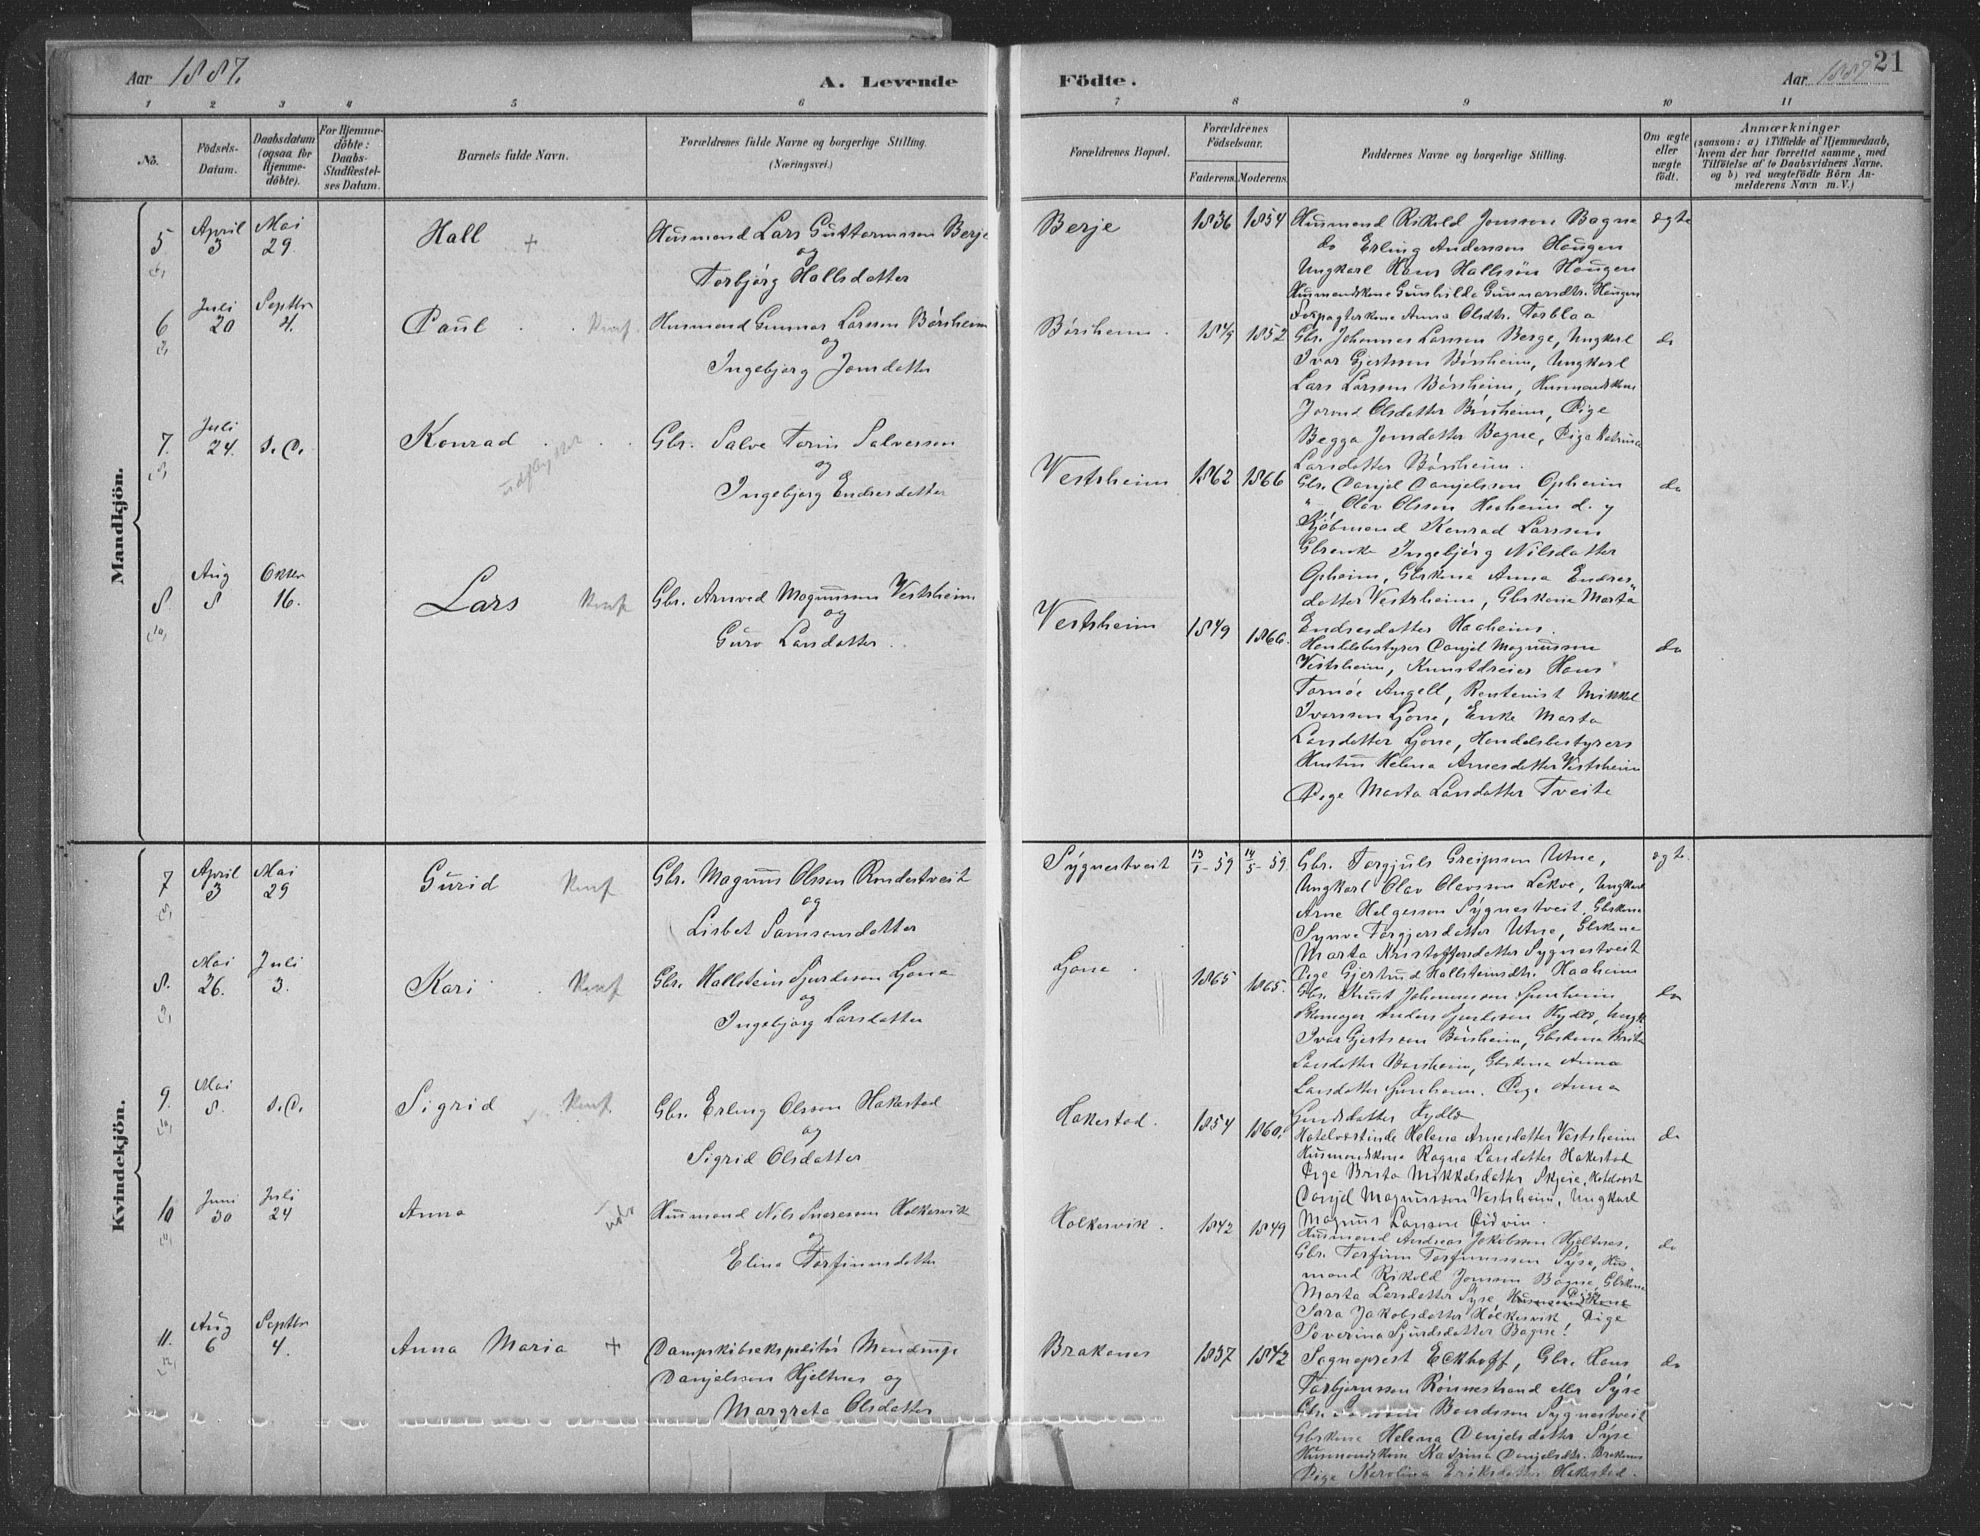 Aar 1887.
A. Levende
Födte.
Aar 1887
21
1 2 3 4 5 6 7 8 9 10 11
No.
Födsels-Datum.
Daabsdatum (ogsaa for Hjemme-döbte).
For Hjemme-döbte: Daabs-Stadfestel-ses Datum.
Barnets fulde Navn.
Forældrenes fulde Navne og borgerlige Stilling. (Næringsvei.)
Forældrenes Bopæl.
Forældrenes Födselsaar.
Faderens. Moderens.
Faddernes Navne og borgerlige Stilling.
Om ægte eller uægte födt.
Anmærkninger
(saasom: a) i Tilfælde af Hjemmedaab, hvem der har forrettet samme, med Tilföielse af to Daabsvidners Navne. og b) ved uægtefödte Börn An-melderens Navn m. V.)
Mandkjön.
5 April 3 Mai 29. Hall + Husmand Lars Guttormsson Berje
og
Torbjörg Hallsdatter
Berje 1836 1854 ægte
Husmand Rikold Jonsson Bagne
do Erling Andersson Haugen
Ungkarl Hans Hallssön Haugen
Husmandskone Gunhilde Gunnarsdtr. Haugen
Forpagterkone Anna Olsdtr. Torblaa
6 Juli 20 Septbr 4. Paul Konf. Husmand Gunnar Larsson Börsheim
og
Ingebjörg Jonsdatter
Börsheim. 1849 1852 do
Gbr. Johannes Larsson Berge, Ungkarl
Ivar Gjertsson Börsheim, Ungkarl
Lars Larsson Börsheim, Husmandskone
Jorand Olsdatter Börsheim, Pige
Begga Jonsdatter Bagne, Pige Katrina
Larsdatter Börsheim.
7. Juli 24. s. D. Konrad Gbr. Salve Torin Salvesson
og
Ingebjörg Endresdatter
Vestrheim 1862 1866 do
Gbr. Danjel Danjelsson Opheim
" Olav Olsson Haaheim d. y
Kjöbmand Konrad Larsson
Gbrenke Ingebjörg Nilsdatter
Opheim, Gbrkone Anna Endres-
datter Vestrheim, Gbrkone Marta
Endresdatter Haaheim.
8. Aug 8 Oktbr 16. Lars Konf Gbr. Arnved Magnusson Vestrheim
og
Guro Larsdatter.
Vestrheim 1849 1866. do
Handelsbestyrer Danjel Magnusson
Vestrheim, Kunstdreier Hans
Tornöe Angell, Rentenist Mikkel
Ivarsson Lione, Enke Marta
Larsdatter Lione, Handelsbestyrers
Hustru Helena Arnesdatter Vestrheim
Pige Marta Larsdatter Tveite
Kvindekjön.
7 April 3 Mai 29 Gurid Konf Gbr. Magnus Olsson Rondestveit
og
Lisbet Samsonsdatter
Sygnestveit 13/1-59 14/5-59 ægte.
Gbr. Torgjuls Greipsson Utne,
Ungkarl Olav Olavsson Lekve, Ungkarl
Arne Helgesson Sygnestveit, Gbrkone
Synve Torgjersdatter Utne, Gbrkone
Marta Kristoffersdatter Sygnestveit
Pige Gjertrud Hallsteinsdtr. Haaheim
8. Mai 26. Juli 3. Kari Konf Gbr. Hallstein Sjurdsson Lione
og
Ingebjörg Larsdatter
Lione. 1865 1865. do
Gbr. Knut Johannesson Spanheim
Skomager Anders Sjurdsson Kydle, Ungk.
Ivar Gjertsson Börsheim, Gbrkone Brita
Larsdatter Börsheim, Gbrkone Anna
Larsdatter Spanheim. Pige Anna
Kydle
9. Mai 8. s. D. Sigrid Konf. Gbr. Erling Olsson Hakestad
og
Sigrid Olsdatter
Hakestad. 1854 1860. do
Hotelværtinde Helena Arnesdatter Vestrheim
Husmandskone Ragna Larsdatter Hakestad
Pige Brita Mikkelsdatter Skjeie, Hotelvært
Danjel Magnusson Vestrheim, Ungkarl
Magnus Larsson Eidvin.
10 Juni 30 Juli 24 Anna Husmand Nils Sveresson Holkesvik
og
Elina Torfinnsdatter
Holkesvik. 1842 1849 do
Husmand Andreas Jakobsson Hjeltnes,
Gbr. Torfinn Torfinnsson Syse, Hus-
mand Rikold Jonsson Bagne, Gbrkone
Marta Larsdatter Syse
Sara Jakobsdatter Holkesvik Pige
Severina Sjurdsdatter Bagne.
11. Aug 6 Septbr 4. Anna Maria + Dampskibsekspeditör Mandrup
Danjelsson Hjeltnes og
Margreta Olsdatter
Brakenes 1837 1842 do
Sogneprest Eckhoff, Gbr. Hans
Torbjørnsson Rönnestrand eller Syse
Gbr. Samson Baardsson Sygnestveit
Gbrkone Helena Danjelsdatter Syse
Husmandskone Katrina Danjelsdtr. Brakenes
Pige Karolina Eriksdatter Hakestad.